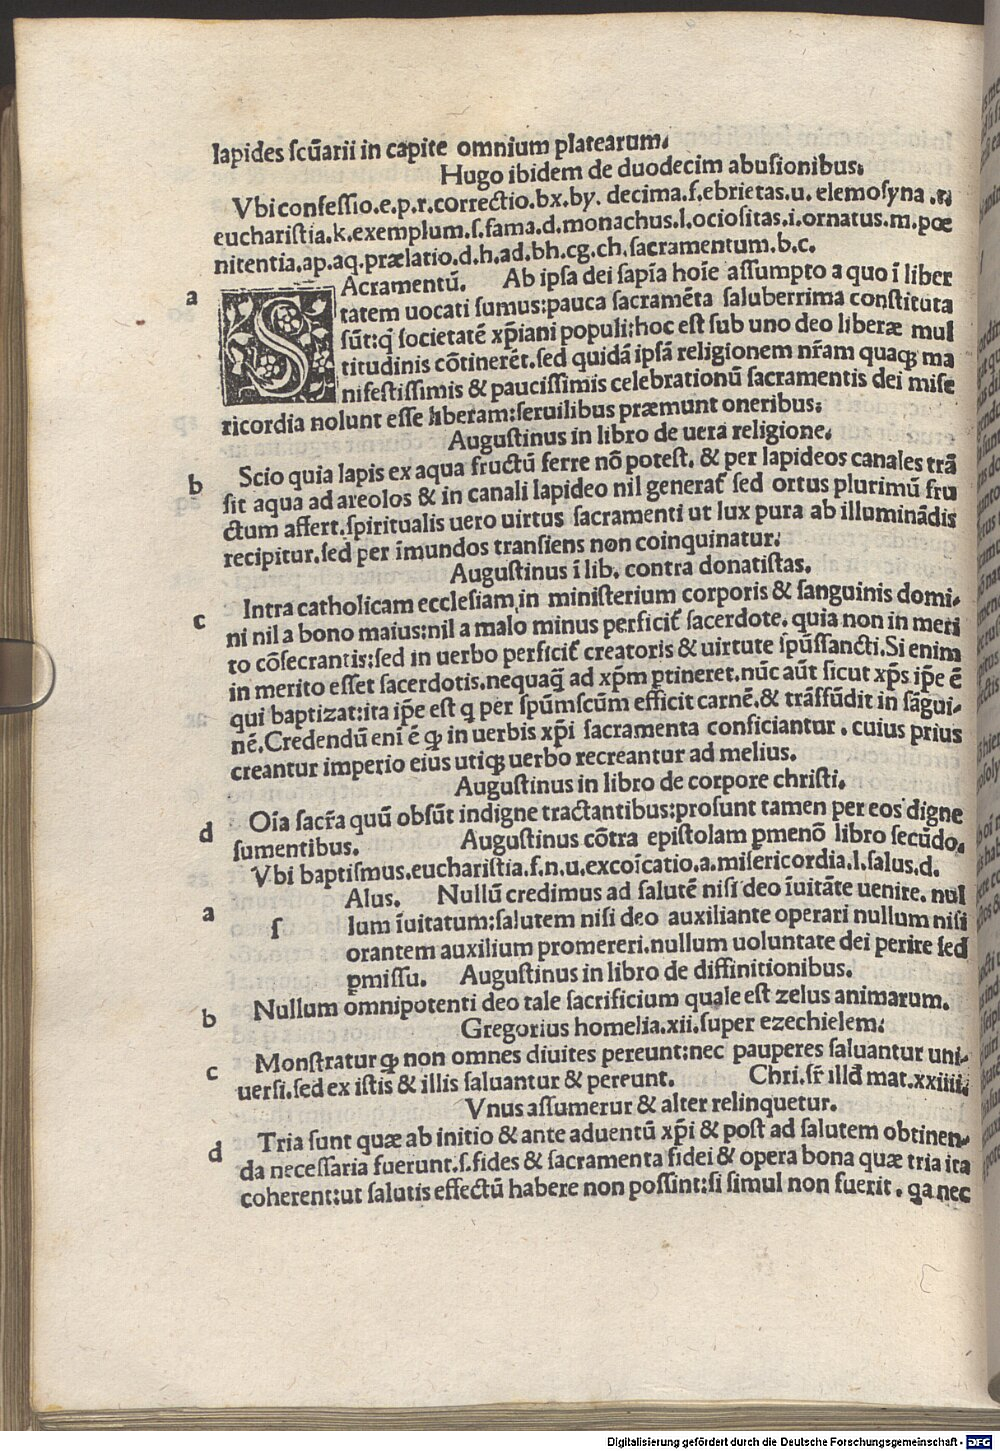 lapides scūarii in capite omnium platearum.
Hugo ibidem de duodecim abusionibus.
Vbi confessio.e.p.r.correctio.bx.by. decima.f.ebrietas.u. elemosyna .r.
eucharistia.k.exemplum.s.fama.d.monachus.l.ociositas.i.ornatus.m.pœ
nitentia.ap.aq.prælatio.d.h.ad.bh.cg.ch.sacramentum.b.c.
a SAcramentū. Ab ipsa dei sapīa hoīe assumpto a quo ī liber
tatem uocati sumus:pauca sacramēta saluberrima constituta
sūt:q̄ societatē xp̄iani populi:hoc est sub uno deo liberæ mul
titudinis cōtinerēt.sed quidā ipsā religionem nr̄am quaqȝ ma
nifestissimis & paucissimis celebrationū sacramentis dei mise
ricordia nolunt esse liberam:seruilibus præmunt oneribus.
Augustinus in libro de uera religione.
b Scio quia lapis ex aqua fructū ferre nō potest. & per lapideos canales trā
sit aqua ad areolos & in canali lapideo nil generat̄ sed ortus plurimū fru
ctum affert.spiritualis uero uirtus sacramenti ut lux pura ab illuminādis
recipitur.sed per īmundos transiens non coinquinatur.
Augustinus ī lib. contra donatistas.
c Intra catholicam ecclesiam in ministerium corporis & sanguinis domi-
ni nil a bono maius:nil a malo minus perficit̄ sacerdote. quia non in meri
to cōsecrantis:sed in uerbo perficit̄ creatoris & uirtute spūssancti.Si enim
in merito esset sacerdotis.nequaq̄ ad xp̄m ꝑtineret.nūc aūt sicut xp̄s ip̄e ē
qui baptizat:ita ip̄e est q per spūmscūm efficit carnē.& trāsfūdit in sāgui-
nē.Credendū eni ē qȝ in uerbis xp̄i sacramenta conficiantur . cuius prius
creantur imperio eius utiqȝ uerbo recreantur ad melius.
Augustinus in libro de corpore christi.
d Oīa sacr̄a quū obsūt indigne tractantibus:prosunt tamen per eos digne
sumentibus. Augustinus cōtra epistolam ꝑmenō libro secūdo.
Vbi baptismus.eucharistia.f.n.u.excoīcatio.a.misericordia.l.salus.d.
a sAlus. Nullū credimus ad salutē nisi deo īuitāte uenire. nul
lum īuitatum:salutem nisi deo auxiliante operari nullum nisi
orantem auxilium promereri.nullum uoluntate dei perire sed
ꝑmissu. Augustinus in libro de diffinitionibus.
b Nullum omnipotenti deo tale sacrificium quale est zelus animarum.
Gregorius homelia.xii.super ezechielem.
c Monstratur qȝ non omnes diuites pereunt:nec pauperes saluantur uni-
uersi.sed ex istis & illis saluantur & pereunt. Chri.sr̄ illđ mat.xxiiii.
Vnus assumerur & alter relinquetur.
d Tria sunt quæ ab initio & ante aduentū xp̄i & post ad salutem obtinen-
da necessaria fuerunt.s.fides & sacramenta fidei & opera bona quæ tria ita
coherent:ut salutis effectū habere non possint:si simul non fuerit . qa nec
Digitalisierung gefördert durch die Deutsche Forschungsgemeinschaft - DFG